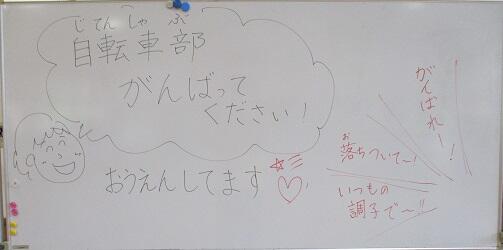 じてんしゃぶ
自転車部
がんばって
ください！
おうえんしてます
がんばれー！！
お
落ちついて〜！
いつもの
調子で〜!!